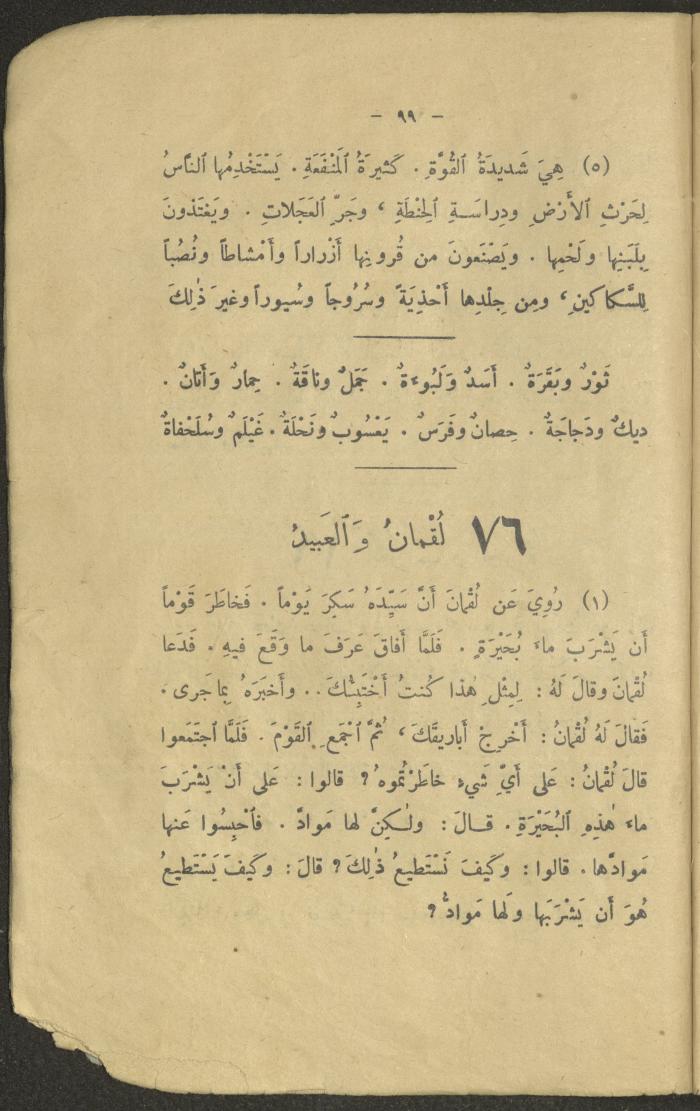 - ٩٩ -
(٥) هِيَ شَديدَةُ ٱلقُوَّةِ . كَثيرَةُ ٱلمَنْفَعَةِ . يَسْتَخْدِمُها ٱلنَّاسُ
لِحَرْثِ ٱلأَرْضِ ودِراسَةِ ٱلحِنْطَةِ ، وجَرِّ ٱلعَجَلاتِ . ويَغْتَذونَ
بِلَبَنِها ولَحْمِها . ويَصْنَعونَ من قُرونِها أَزْراراً وأَمْشاطاً ونُصُباً
لِلسَّكاكينِ ، ومِن جِلْدِها أَحْذِيَةً وسُرُوجاً وسُيوراً وغيرَ ذٰلِكَ
ثَوْرٌ وبَقَرَةٌ . أَسَدٌ وَلَبُوءَةٌ . جَمَلٌ وناقَةٌ . حِمارٌ وَأَتانٌ .
ديكٌ ودَجاجَةٌ . حِصانٌ وفَرَسٌ . يَعْسُوبٌ ونَحْلَةٌ . غَيْلَمٌ وسُلَحْفاةٌ
٧٦ لُقْمانُ وَٱلعَبيدُ
(١) رُوِيَ عَن لُقْمانَ أَنَّ سَيِّدَهُ سَكِرَ يَوْماً . فَخاطَرَ قَوْماً
أَن يَشْرَبَ ماءَ بُحَيْرَةٍ . فَلَمَّا أَفاقَ عَرَفَ ما وَقَعَ فيهِ . فَدَعا
لُقْمانَ وقالَ لَهُ : لِمِثْلِ هٰذا كُنتُ أَخْتَبِئُكَ .. وأَخبَرَهُ بِما جَرى .
فَقالَ لَهُ لُقْمانُ : أَخْرِجْ أَباريقَكَ ، ثُمَّ ٱجْمَعِ ٱلقَوْمَ . فَلَمَّا ٱجتَمَعوا
قالَ لُقْمانُ : عَلى أَيِّ شَيءٍ خاطَرْتُموهُ ؟ قالوا : عَلى أَنْ يَشْرَبَ
ماءَ هٰذِهِ ٱلبُحَيْرَةِ . قالَ : ولٰكِنَّ لها مَوادَّ . فَٱحْبِسُوا عَنها
مَوادَّها . قالوا : وكَيفَ نَسْتَطيعُ ذٰلِكَ ؟ قالَ : وكَيفَ يَسْتَطيعُ
هُوَ أَن يَشْرَبَها ولَها مَوادُّ ؟